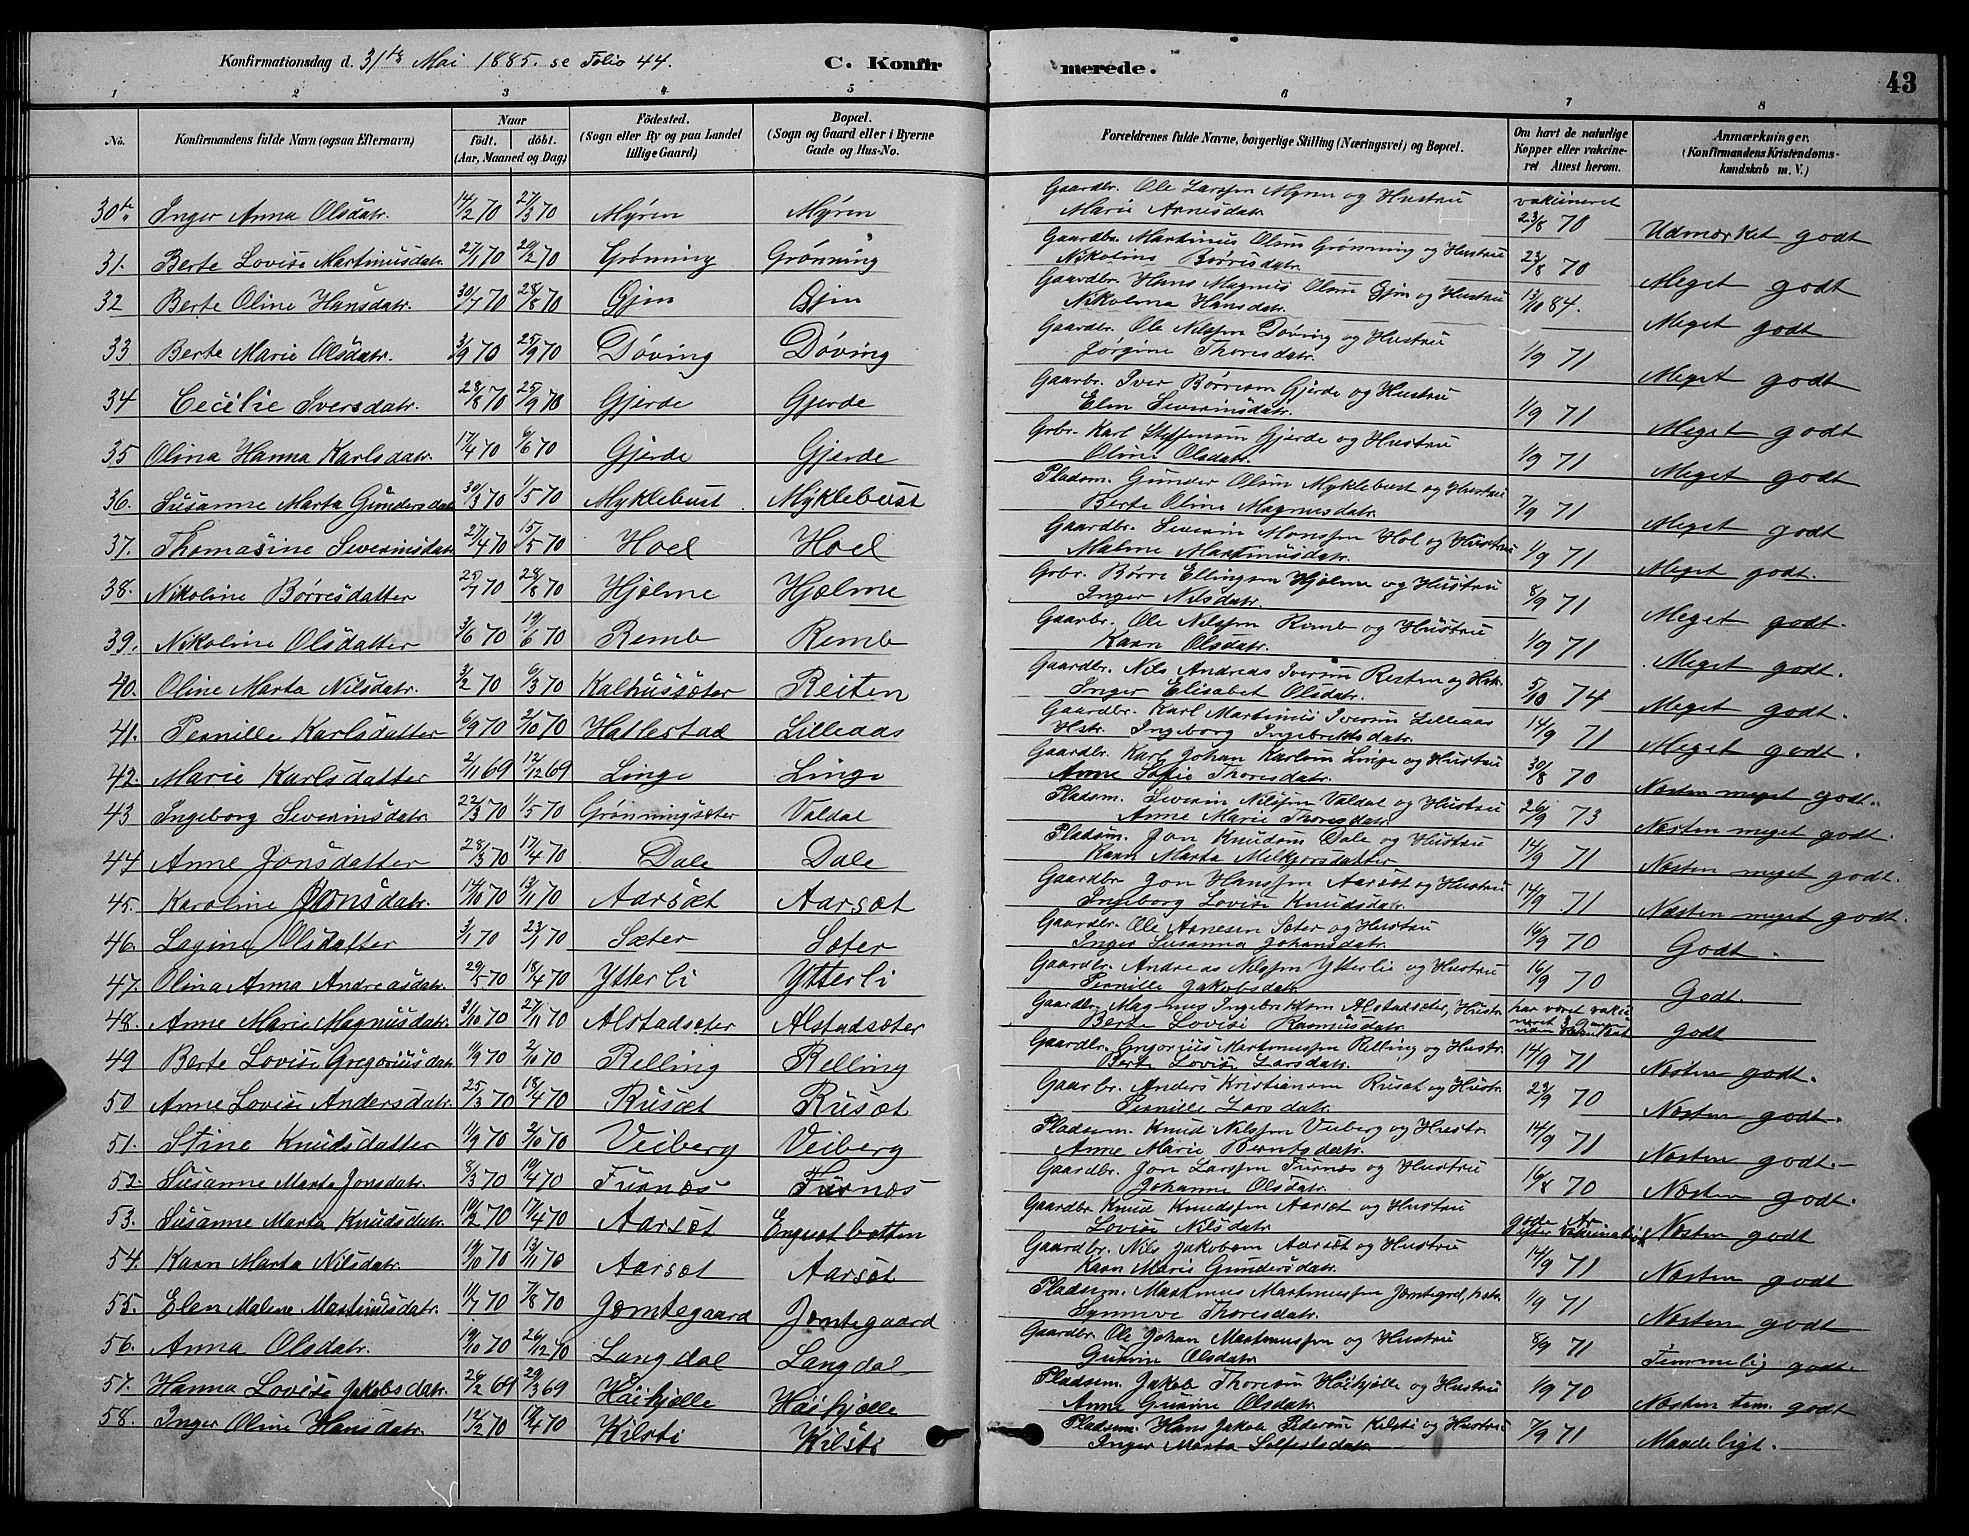 Konfirmationsdag d. 31te Mai 1885. se Folio 44.
C. Konfirmerede.
43
1 2 3 4 5 6 7 8
No.
Konfirmandens fulde Navn (ogsaa Efternavn)
Naar
födt. döbt.
(Aar, Maaned og Dag)
Födested.
(Sogn eller By og paa Landet
tillige Gaard)
Bopæl.
(Sogn og Gaard eller i Byerne
Gade og Hus-No.
Forældrenes fulde Navne, borgerlige Stilling (Næringsvei) og Bopæl.
Om havt de naturlige
Kopper eller vakcine-
ret Attest herom.
Anmærkninger.
(Konfirmandens Kristendoms-
kundskab m. V.)
30te Inger Anna Olsdatr. 14/2 70 27/3 70 Myren Myren Gaardbr. Ole Larssen Myren og Hustru
Marie Arnesdatr. vakcineret 23/8 70 Udmærket godt
31. Berte Lovise Martinusdatr. 27/1 70 20/2 70 Grønning Grønning Gaardbr. Martinus Olsen Grønning og Hustru
Nikoline Børresdatr. 23/8 70 Meget godt
32 Berte Oline Hansdatr. 30/7 70 28/8 70 Gjin Gjin Gaardbr. Hans Magnus Olsen Gjin og Hustru
Nikolina Hansdatr. 13/10 84. Meget godt
33 Berte Marie Olsdatr. 3/9 70 25/9 70 Döving Döving Gaardbr. Ole Nilssen Döving og Hustru
Jörgine Thoresdatr. 1/9 71 Meget godt
34 Cecilie Iversdatr. 28/8 70 25/9 70 Gjerde Gjerde Gaarbr. Iver Børresen Gjerde og Hustru
Elen Severinsdatr. 1/9 71 Meget godt
35 Olina Hanna Karlsdatr. 17/4 70 6/6 70 Gjerde Gjerde Grbr. Karl Steffensen Gjerde og Hustru
Oline Olsdatr. 1/9 71 Meget godt
36. Susanne Marta Gundersdatr 30/3 70 1/5 70 Myklebust Myklebust Pladsm. Gunder Olsen Myklebust og Hustru
Berte Oline Magnusdatr. 7/9 71 Meget godt
37. Thomasine Severinsdatr 27/4 70 15/5 70 Hoel Hoel Gaardbr. Severin Monssen Hol og Hustru
Malene Martinusdatr. 1/9 71 Meget godt.
38. Nikoline Børresdatter 25/7 70 28/8 70 Hjelme Hjelme Grbr. Børre Ellingsen Hjelme og Hustru
Inger Nilsdatr. 8/9 71 Meget godt.
39. Nikoline Olsdatter 3/6 70 19/6 70 Remb Remb Gaarbr. Ole Nilssen Remb og Hustru
Karn Olsdatr. 1/9 71 Meget godt.
40. Oline Marta Nilsdatr. 3/2 70 6/3 70 Kalhussæter Reiten Gaardbr. Nils Andreas Iversen Resten og Hstr.
Inger Elisabet Olsdatr. 5/10 74 Meget godt.
41. Pernille Karlsdatter 6/9 70 2/10 70 Hatlestad Lilleaas Gaardbr. Karl Martinus Iversen Lilleaas
Hstr. Ingeborg Ingebrektsdatr. 14/9 71 Meget godt.
42. Marie Karlsdatter 2/11 69 12/12 69 Linge Linge Gaardbr. Karl Johan Karlsen Linge og Hustru
Anne Sofie Thoresdatr. 30/8 70 Næsten meget godt.
43 Ingeborg Severinsdatr. 22/3 70 1/5 70 Grønningsæter Valdal Pladsm. Severin Nilssen Valdal og Hustru
Anne Marie Thoresdatr. 26/9 73 Næsten meget godt.
44 Anne Jonsdatter 28/3 70 17/4 70 Dale Dale Pladsm. Jon Knudsen Dale og Hustru
Karn Marta Melkjorsdatter 14/9 71 Næsten meget godt.
45. Karoline Jonsdatr. 14/10 70 13/11 70 Aarsæt Aarsæt Gaardbr Jon Hanssen Aarsæt og Hustru
Ingeborg Lovise Knudsdatr. 14/9 71 Næsten meget godt.
46. Lavine Olsdatter 3/1 70 23/1 70 Sæter Sæter Gaardbr. Ole Arnesen Sæter og Hustru
Inger Susanna Johansdatr. 16/9 70 Godt.
47. Olina Anna Andreasdatr. 29/5 70 18/4 70 Ytterli Ytterli Gaardbr. Andreas Nilssen Ytterlie og Hustru
Pernille Jakobsdatr. 16/9 70 Godt.
48. Anne Marie Magnusdatr. 31/10 70 27/11 70 Alstadsæter Alstadsæter Gaardbr. Magnus Ingebriktsen Alstadsæter, Hustr.
Berte Lovise Rasmusdatr har været vakci
neret 3 Gange godt
49 Berte Lovise Gregoriusdatr 11/9 70 2/10 70 Relling Relling Gaardbr. Gregorius Martinussen Relling og Hustr.
Berte Lovise Larsdatr. 14/9 71 Næsten godt.
50 Anne Lovise Andersdatr. 25/3 70 18/4 70 Rusæt Rusæt Gaarbr. Anders Kristiansen Rusæt og Hustr.
Pernille Larsdatr. 23/9 70 Næsten godt.
51. Stine Knudsdatter 11/9 70 2/10 70 Veiberg Veiberg Pladsm. Knud Nilssen Veiberg og Hustr.
Anne Marie Berntsdatr. 14/9 71 Næsten godt.
52. Susanne Marta Jonsdatr. 8/3 70 19/4 70 Furnæs Furnæs Gaardbr. Jon Larssen Furnæs og Hustru
Johanne Olsdatr. 16/8 70 Næsten godt.
53. Susanne Marta Knudsdatr. 19/2 70 17/4 70 Aarsæt Engesetbotten Gaardbr. Knud Knudssen Aarsæt og Hustru
Lovise Nilsdatr. Næsten godt
54. Karn Marta Nilsdatr. 19/10 70 13/11 70 Aarsæt Aarsæt Gaardbr. Nils Jakobsen Aarsæt og Hustru
Karn Marie Gundersdatr. 14/9 71 Næsten godt
55. Elen Malene Martinusdatr. 11/7 70 7/8 70 Jemtegaard Jemtegaard Pladsm. Martinus Martinussen Jemtegrd, hstr.
Synneve Thoresdatr. 1/9 71 Næsten godt
56. Anna Olsdatr. 19/10 70 26/12 70 Langdal Langdal Gaardbr. Ole Johan Martinussen og Hustru
Gurine Olsdatr. 8/9 71 Temmelig godt.
57. Hanna Lovise Jakobsdatr. 26/2 69 29/3 69 Høihjelle Høihjelle Pladsem. Jakob Thoresen Høihjelle og Hustru
Anne Gurine Olsdatr. 1/9 70 Næsten tem. godt
58. Inger Oline Hansdatr. 12/2 70 18/4 70 Kilsti Kilsti Pladsem. Hans Jakob Pedersen Kilsti og Hustru
Inger Marta Solfestsdatr 7/9 71 Maadeligt.